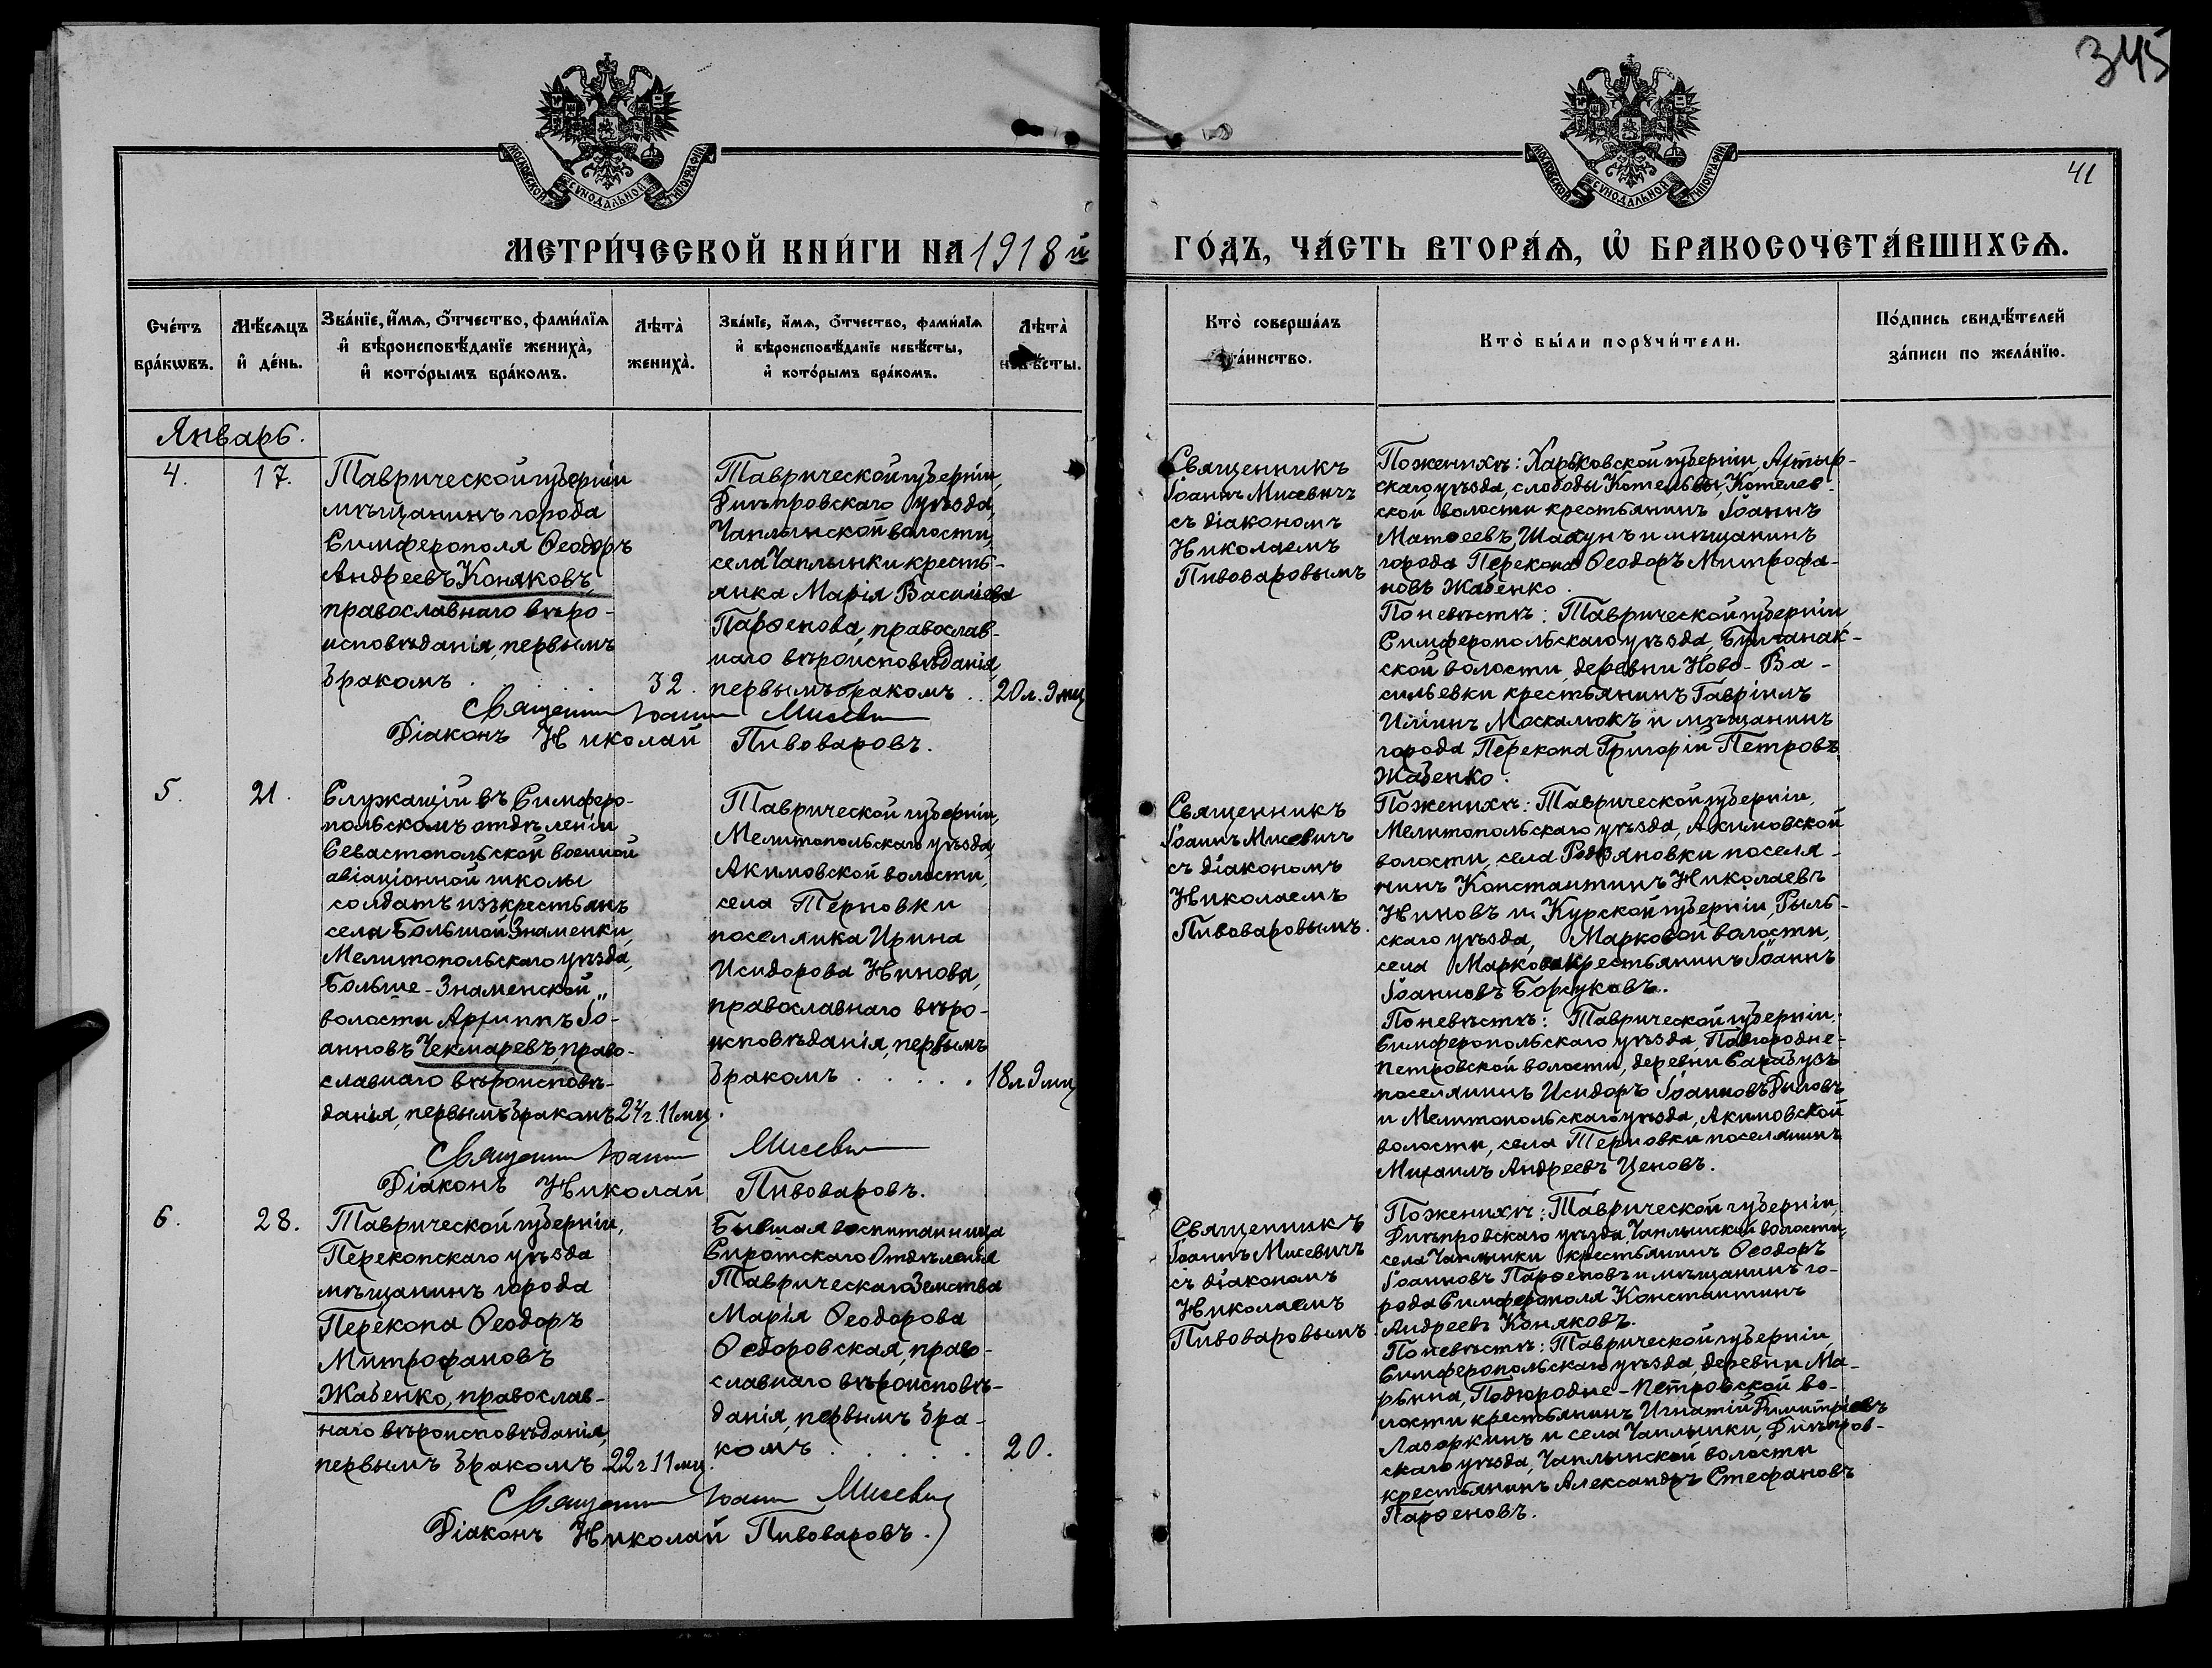 345
41
МОСКОВСКОЙ СѴНОДАЛЬНОЙ ТИПОГРАФІИ
МОСКОВСКОЙ СѴНОДАЛЬНОЙ ТИПОГРАФІИ
МЕТРИ́ЧЕСКОЙ КНИ́ГИ НА 1918й
ГО́ДЪ, ЧА́СТЬ ВТОРА́Я, Ѡ҆ БРАКОСОЧЕТА́ВШИХСѦ.
Сче́тъ
бра́кѡвъ.
Мѣ́сѧцъ
и҆ де́нь.
Зва́нїе, и҆́мѧ, ѻ҆́тчество, фами́лїѧ
и҆ вѣроисповѣ́данїе жениха̀,
и҆ кото́рымъ бра́комъ.
Лѣта̀
жениха̀.
Зва́нїе, и҆́мѧ, ѻ҆́тчество, фами́лїѧ
и҆ вѣроисповѣ́данїе невѣ́сты,
и҆ кото́рымъ бра́комъ.
Лѣта̀
невѣ́сты.
Кто̀ соверша́лъ
та́инство.
Кто̀ бы́ли порꙋчи́тели.
По́дпись свидѣ́телей
за́писи по жела́нїю.
Январь.
4.
17.
Таврической губерніи
мѣщанинъ города
Симферополя Ѳеодоръ
Андреевъ Коняковъ,
православнаго вѣро-
исповѣданія, первымъ
бракомъ
32.
Таврической губерніи,
Днѣпровскаго уѣзда,
Чаплынской волости,
села Чаплынки кресть-
янка Марія Василіева
Парѳенова, православ-
наго вѣроисповѣданія,
первымъ бракомъ
20 л. 9 мц
Священникъ Іоаннъ Мисевичъ
Діаконъ Николай Пивоваровъ.
Священникъ
Іоаннъ Мисевичъ
съ діакономъ
Николаемъ
Пивоваровымъ
По женихѣ: Харьковской губерніи, Ахтыр-
скаго уѣзда, слободы Котельвы, Котелев-
ской волости крестьянинъ Іоаннъ
Матѳеевъ Шахунъ и мѣщанинъ
города Перекопа Ѳеодоръ Митрофа-
новъ Жабенко.
По невѣстѣ: Таврической губерніи,
Симферопольскаго уѣзда, Булганак-
ской волости, деревни Ново-Ва-
сильевки крестьянинъ Гавріилъ
Иліинъ Москалюкъ и мѣщанинъ
города Перекопа Григорій Петровъ
Жабенко.
5.
21.
Служащій въ Симферо-
польскомъ отдѣленіи
Севастопольской военной
авіаціонной школы
солдатъ изъ крестьянъ
села Большой Знаменки,
Мелитопольскаго уѣзда,
Больше-Знаменской
волости Архиппъ Іо-
анновъ Чекмаревъ, право-
славнаго вѣроисповѣ-
данія, первымъ бракомъ
24 г. 11 мц.
Таврической губерніи,
Мелитопольскаго уѣзда,
Акимовской волости,
села Терновки
поселянка Ирина
Исидорова Нинова,
православнаго вѣро-
исповѣданія, первымъ
бракомъ
18 л 9 мц
Священникъ Іоаннъ Мисевичъ
Діаконъ Николай Пивоваровъ.
Священникъ
Іоаннъ Мисевичъ
съ діакономъ
Николаемъ
Пивоваровымъ.
По женихѣ: Таврической губерніи,
Мелитопольскаго уѣзда, Акимовской
волости, села Родзяновки поселя-
нинъ Константинъ Николаевъ
Ниновъ и Курской губерніи, Рыль-
скаго уѣзда, Марковой волости,
села Маркова крестьянинъ Іоаннъ
Іоанновъ Борсуковъ.
По невѣстѣ: Таврической губерніи,
Симферопольскаго уѣзда, Подгородне-
Петровской волости, деревни Сарабузъ
поселянинъ Исидоръ Іоанновъ Диловъ
и Мелитопольскаго уѣзда, Акимовской
волости, села Терновки поселянинъ
Михаилъ Андреевъ Ценовъ.
6.
28.
Таврической губерніи,
Перекопскаго уѣзда
мѣщанинъ города
Перекопа Ѳеодоръ
Митрофановъ
Жабенко, православ-
наго вѣроисповѣданія,
первымъ бракомъ
22 г 11 мц.
Бывшая воспитанница
Сиротскаго Отдѣленія
Таврическаго Земства
Марія Ѳеодорова
Ѳедоровская, право-
славнаго вѣроисповѣ-
данія, первымъ бра-
комъ
20.
Священникъ Іоаннъ Мисевичъ
Діаконъ Николай Пивоваровъ.
Священникъ
Іоаннъ Мисевичъ
съ діакономъ
Николаемъ
Пивоваровымъ.
По женихѣ: Таврической губерніи,
Днѣпровскаго уѣзда, Чаплынской волости,
села Чаплынки крестьянинъ Ѳеодоръ
Іоанновъ Парѳеновъ и мѣщанинъ го-
рода Симферополя Константинъ
Андреевъ Коняковъ.
По невѣстѣ: Таврической губерніи,
Симферопольскаго уѣзда, деревни Ма-
рьина, Подгородне-Петровской во-
лости крестьянинъ Игнатій Димитріевъ
Лазоркинъ и села Чаплынки, Днѣпров-
скаго уѣзда, Чаплынской волости
крестьянинъ Александръ Стефановъ
Парѳеновъ.